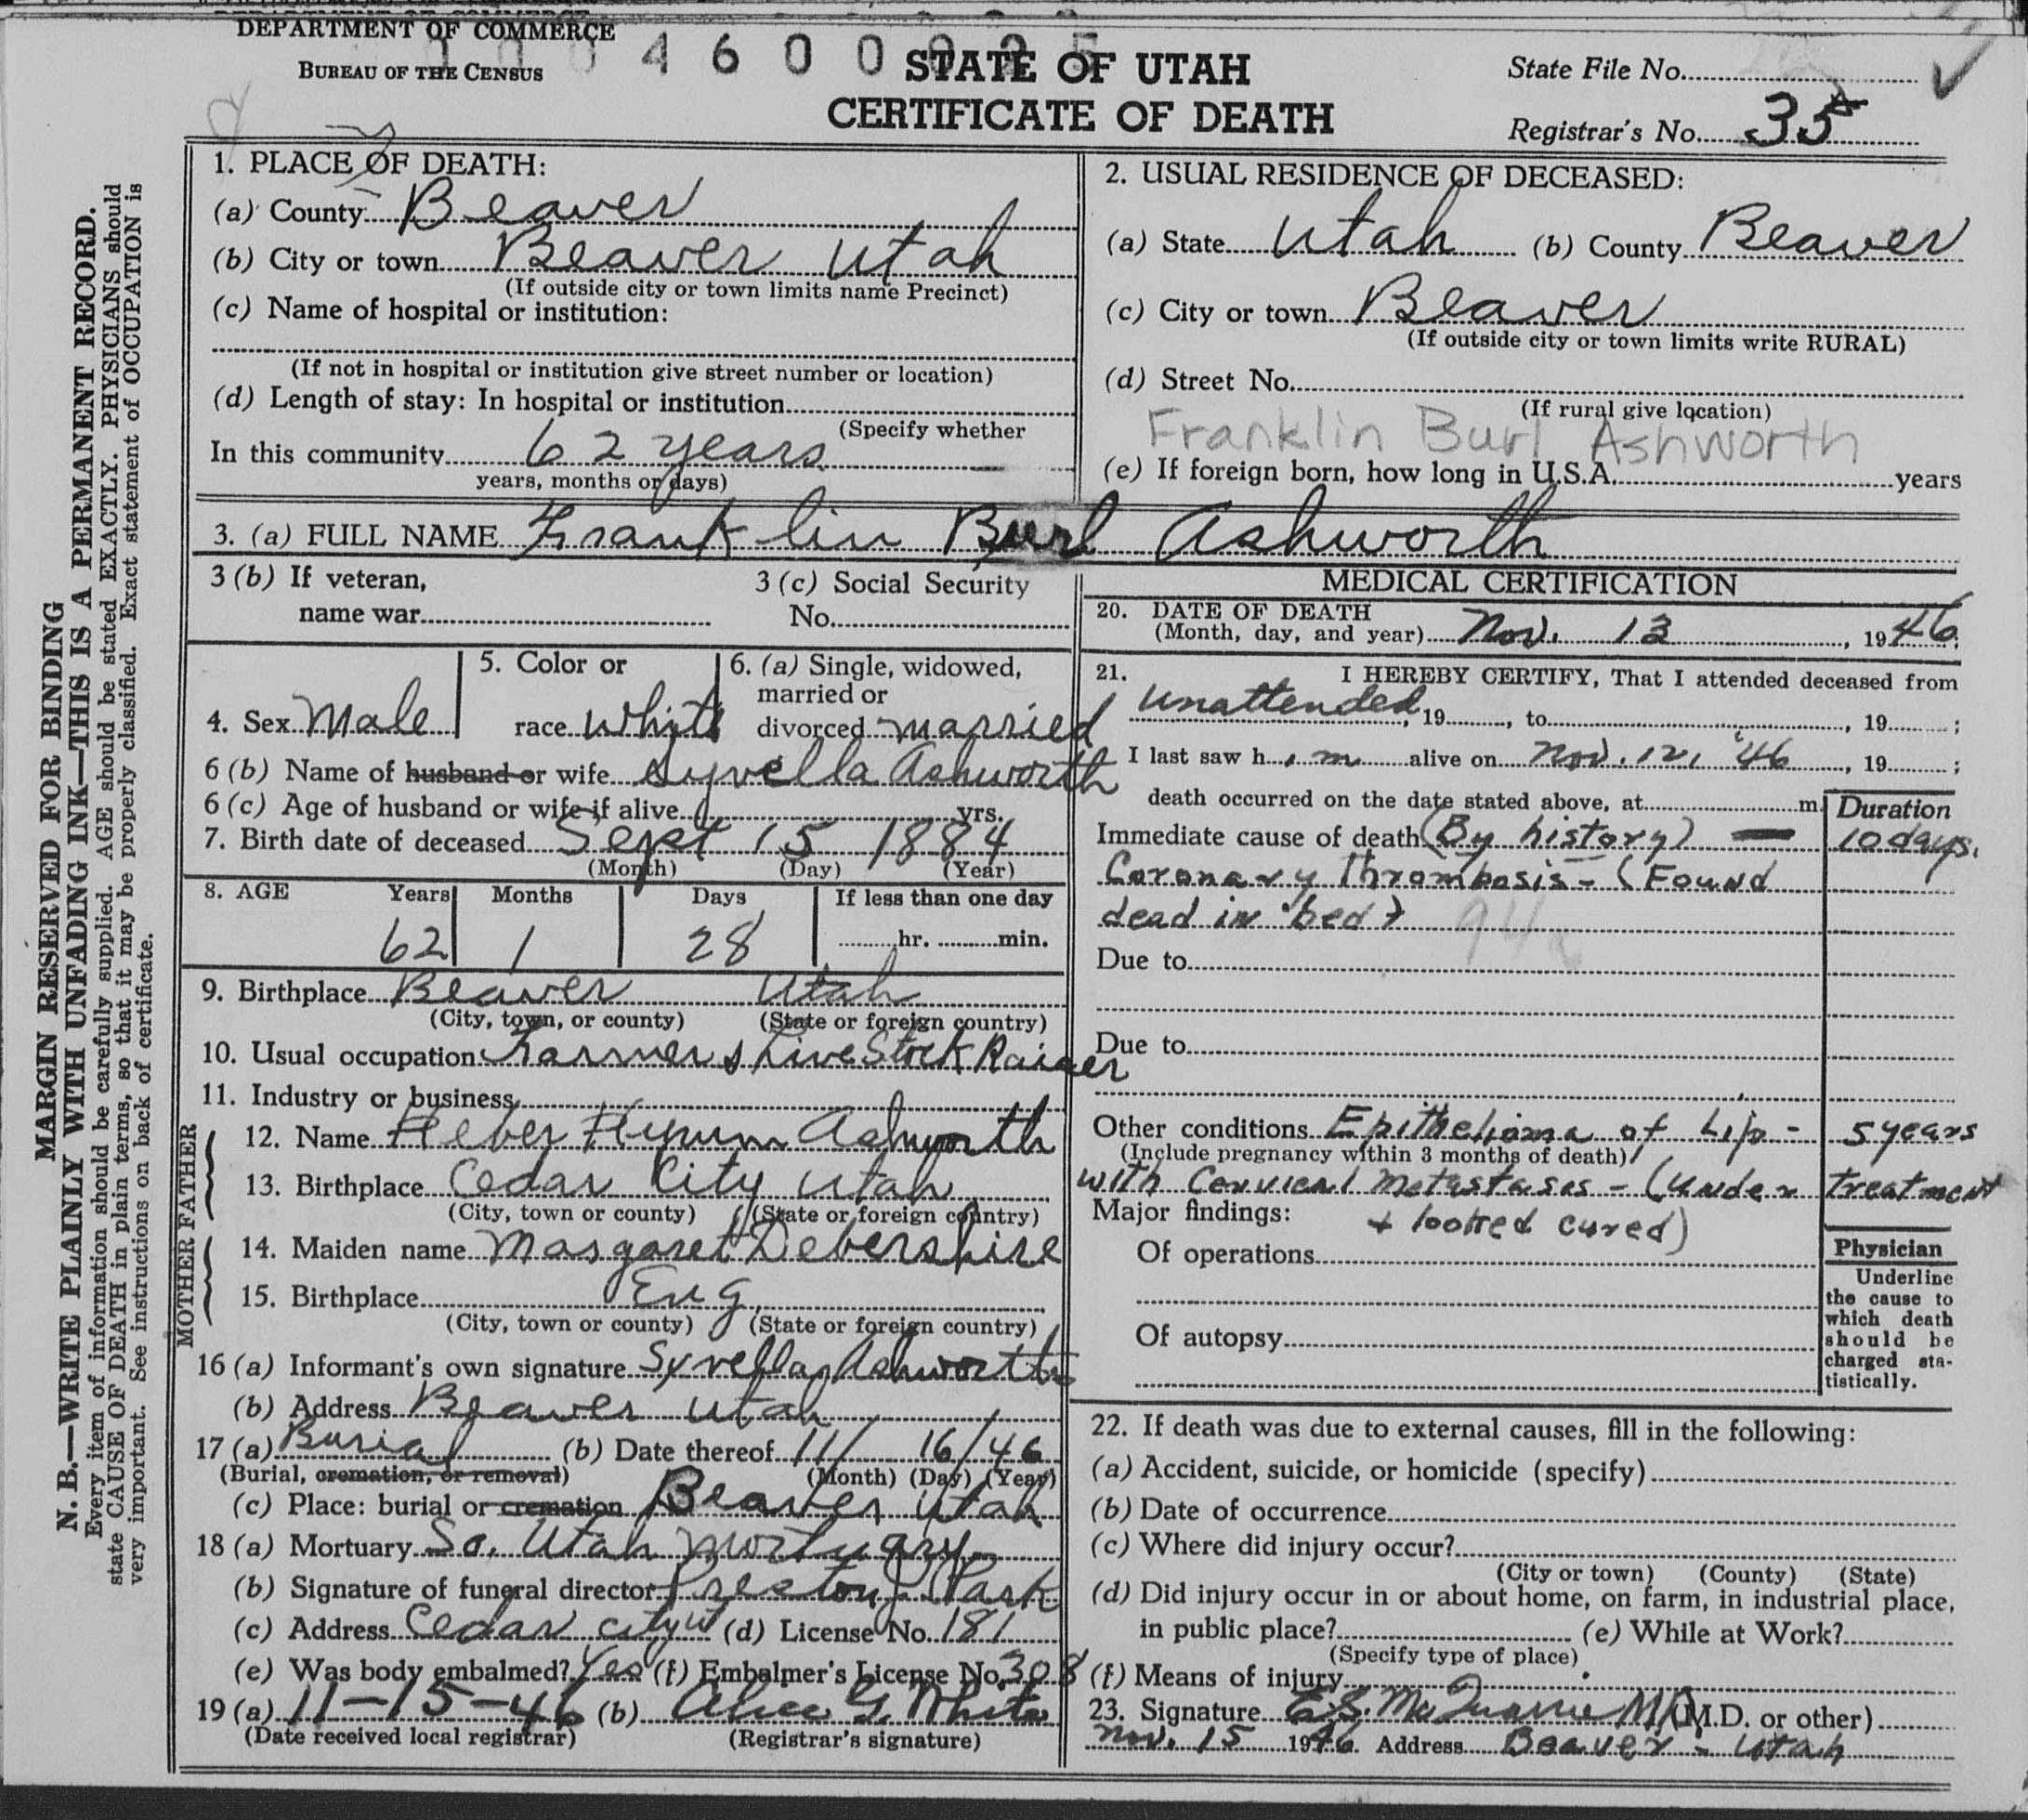 DEPARTMENT OF COMMERCE
BUREAU OF THE CENSUS
4 6 0 0 0
STATE OF UTAH
CERTIFICATE OF DEATH
State File No.
Registrar's No. 35
MARGIN RESERVED FOR BINDING
N. B.—WRITE PLAINLY WITH UNFADING INK—THIS IS A PERMANENT RECORD.
Every item of information should be carefully supplied. AGE should be stated EXACTLY. PHYSICIANS should
state CAUSE OF DEATH in plain terms, so that it may be properly classified. Exact statement of OCCUPATION is
very important. See instructions on back of certificate.
1. PLACE OF DEATH:
(a) County Beaver
(b) City or town Beaver Utah
(If outside city or town limits name Precinct)
(c) Name of hospital or institution:
(If not in hospital or institution give street number or location)
(d) Length of stay: In hospital or institution
(Specify whether
In this community 62 years
years, months or days)
2. USUAL RESIDENCE OF DECEASED:
(a) State Utah (b) County Beaver
(c) City or town Beaver
(If outside city or town limits write RURAL)
(d) Street No.
(If rural give location)
Franklin Burl Ashworth
(e) If foreign born, how long in U.S.A. years
3. (a) FULL NAME Franklin Burl Ashworth
3 (b) If veteran,
name war
3 (c) Social Security
No.
4. Sex Male
5. Color or
race White
6. (a) Single, widowed,
married or
divorced married
6 (b) Name of husband or wife Syvella Ashworth
6 (c) Age of husband or wife if alive yrs.
7. Birth date of deceased Sept 15 1884
(Month) (Day) (Year)
8. AGE Years Months Days If less than one day
62 1 28 hr. min.
9. Birthplace Beaver Utah
(City, town, or county) (State or foreign country)
10. Usual occupation Farmer & Live Stock Raiser
11. Industry or business
FATHER
12. Name Heber Hyrum Ashworth
13. Birthplace Cedar City Utah
(City, town or county) (State or foreign country)
MOTHER
14. Maiden name Margaret Debershire
15. Birthplace Eng.
(City, town or county) (State or foreign country)
16 (a) Informant's own signature Syvella Ashworth
(b) Address Beaver Utah
17 (a) Burial (b) Date thereof 11/ 16/46
(Burial, cremation, or removal) (Month) (Day) (Year)
(c) Place: burial or cremation Beaver Utah
18 (a) Mortuary So. Utah Mortuary
(b) Signature of funeral director Preston J Park
(c) Address Cedar City U (d) License No. 181
(e) Was body embalmed? Yes (f) Embalmer's License No. 308
19 (a) 11-15-46 (b) Alice G. White
(Date received local registrar) (Registrar's signature)
MEDICAL CERTIFICATION
20. DATE OF DEATH
(Month, day, and year) Nov. 13, 1946
21. I HEREBY CERTIFY, That I attended deceased from
unattended, 19, to, 19;
I last saw him alive on Nov. 12, '46, 19;
death occurred on the date stated above, at m. Duration
Immediate cause of death (By history) — 10 days.
Coronary Thrombosis - (Found
dead in bed)
94a
Due to
Due to
Other conditions Epithelioma of Lip - 5 years
(Include pregnancy within 3 months of death)
with Cervical Metastases - (under treatment
& looked cured)
Major findings:
Of operations
Of autopsy
Physician
Underline
the cause to
which death
should be
charged sta-
tistically.
22. If death was due to external causes, fill in the following:
(a) Accident, suicide, or homicide (specify)
(b) Date of occurrence
(c) Where did injury occur?
(City or town) (County) (State)
(d) Did injury occur in or about home, on farm, in industrial place,
in public place? (e) While at Work?
(Specify type of place)
(f) Means of injury
23. Signature E.S. McQuarrie M.D. (M.D. or other)
Nov. 15 1946 Address Beaver - Utah